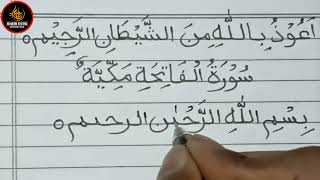 اَعُوْذُ بِاللّٰهِ مِنَ الشَّيْطَانِ الرَّجِيْمِ ○
سُوْرَةُ الْفَاتِحَةِ مَكِّيَّةٌ
بِسْمِ اللّٰهِ الرَّحْمٰنِ الرحىم ○